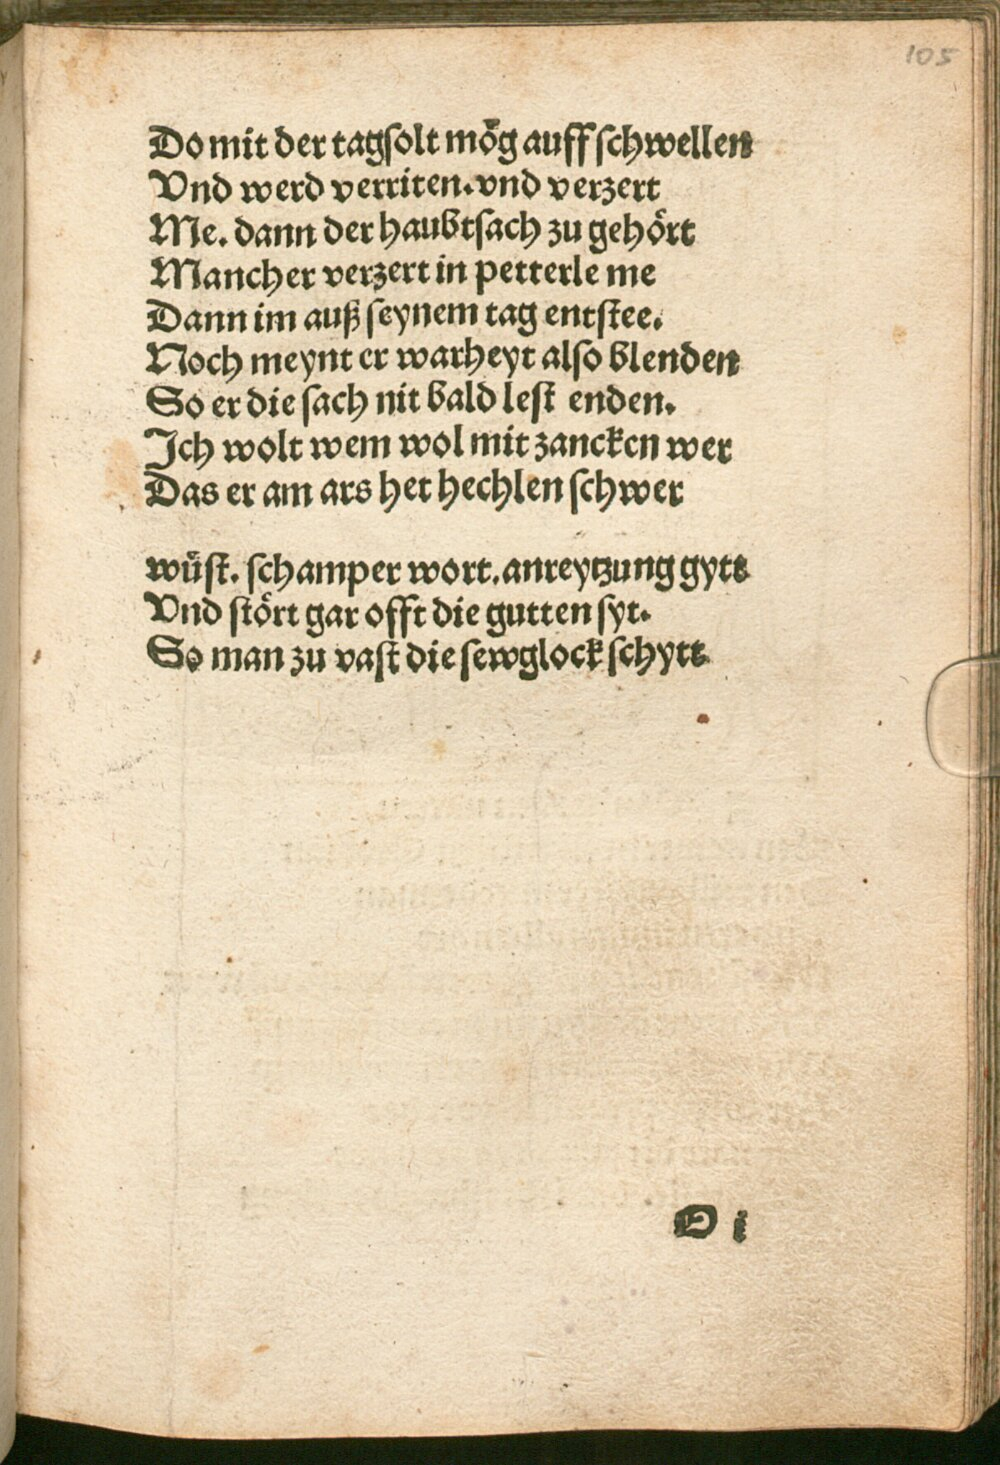 105
Do mit der tagsolt mög auff schwellen
Vnd werd verriten. vnd verzert
Me. dann der haubtsach zu gehört
Mancher verzert in petterle me
Dann im auß seynem tag entstee.
Noch meynt er warheyt also blenden
So er die sach nit bald lest enden.
Ich wolt wem wol mit zancken wer
Das er am ars het hechlen schwer
wüst. schamper wort. anreytzung gytt
Vnd stört gar offt die gutten syt.
So man zu vast die sewglock schytt
i